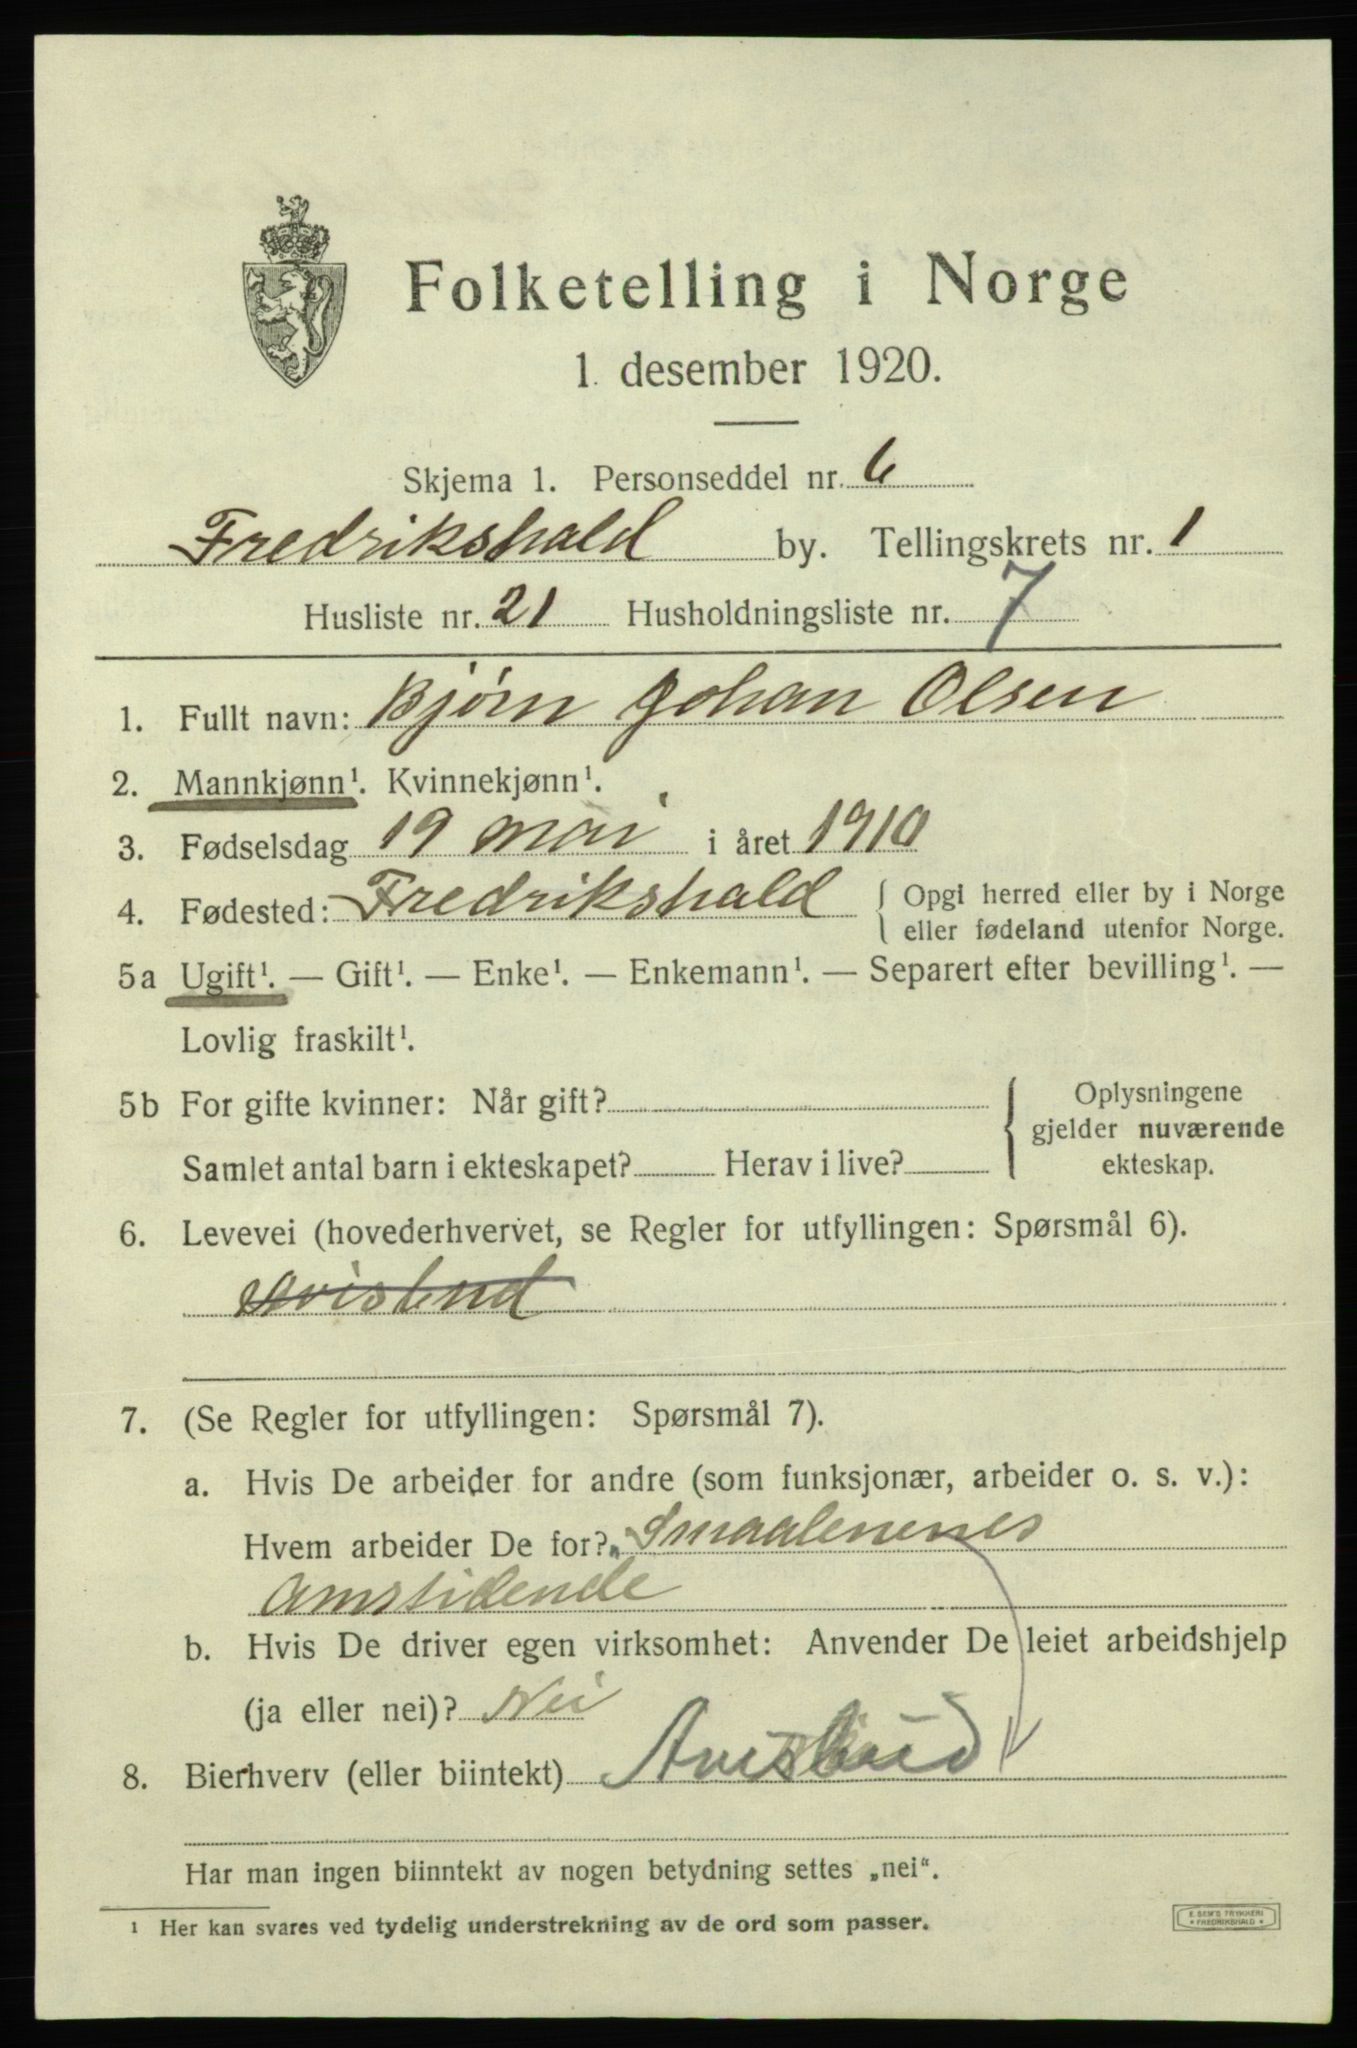 Folketelling i Norge
1. desember 1920.
Skjema 1. Personseddel nr. 6
Fredrikshald by. Tellingskrets nr. 1
Husliste nr. 21 Husholdningsliste nr. 7
1. Fullt navn: Bjørn Johan Olsen
2. Mannkjønn¹. Kvinnekjønn¹.
3. Fødselsdag 19 mai i året 1910
4. Fødested: Fredrikshald { Opgi herred eller by i Norge
eller fødeland utenfor Norge.
5a Ugift¹. — Gift¹. — Enke¹. — Enkemann¹. — Separert efter bevilling¹. —
Lovlig fraskilt¹.
5b For gifte kvinner: Når gift? { Oplysningene
gjelder nuværende
Samlet antal barn i ekteskapet? Herav i live? ekteskap.
6. Levevei (hovederhvervet, se Regler for utfyllingen: Spørsmål 6).
Avisbud
7. (Se Regler for utfyllingen: Spørsmål 7).
a. Hvis De arbeider for andre (som funksjonær, arbeider o. s. v.):
Hvem arbeider De for? Smaalenenes
Amstidende
b. Hvis De driver egen virksomhet: Anvender De leiet arbeidshjelp
(ja eller nei)? Nei
8. Bierhverv (eller biintekt) Avisbud
Har man ingen biinntekt av nogen betydning settes „nei“.
¹ Her kan svares ved tydelig understrekning av de ord som passer.
E. SEM'S TRYKKERI
* FREDRIKSHALD *